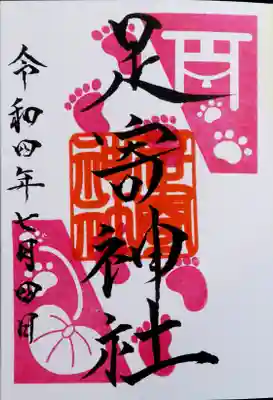 足寄神社
令和四年七月四日